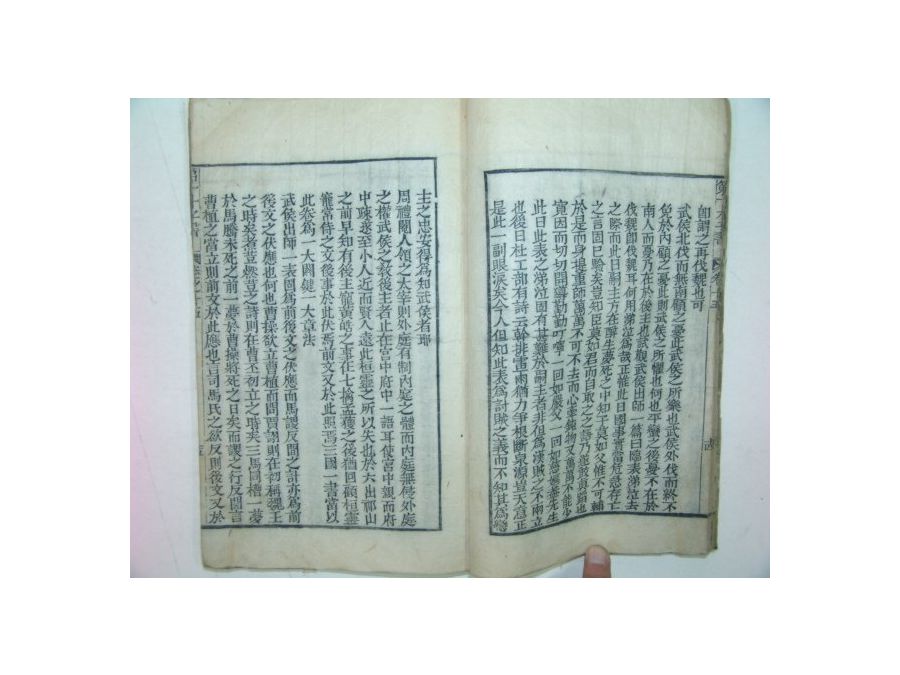 即謂之再伐魏也可
武侯北伐而無南顧之憂此武侯之所樂也武侯外伐而終不
免於內顧之憂此則武侯之所懼也何也平蠻之後憂不在於
南人而憂乃在於後主也試觀武侯出師一篇曰臨表涕泣去
伐魏卽伐魏耳何用涕泣爲哉正惟此日國事實當危急存亡
之際而此日嗣主方在醉生夢死之中知子莫如父惟不可輔
之言固已驗矣豈知臣莫如君而自取之之語乃
於是而身提重師萬萬不可不去而心牽
寬因而切切開導勤勤叮嚀一回如嚴父一回如慈嫗蓋先生
此日此表之涕泣固有甚難於嗣主者非但爲漢賊之不兩立
也後日杜工部有詩云幹排雷雨猶力爭根斷泉源豈天意正
是此一副眼淚矣今人但知此表爲討賊之義而不知其爲戀
主之忠安得爲知武侯者耶
周禮閽人領之太宰則外庭有制內庭之體而內庭無侵外庭
之權武侯之教後主者止在宮中府中一語耳使宮中親而府
中疎遂至小人近而賢人遠此桓靈之所以失也於六出祁山
之前早知有後主寵黃皓之事在七擒孟獲之後猶回顧桓靈
寵常侍之文後事於此伏焉前文又於此照焉三國一書當以
此卷爲一大關鍵一大章法
武侯出師一表固爲前後文之伏應而馬謖反間之計亦爲前
後文之伏應也何也曹操欲立曹植而問賈詡則在初稱魏王
之時矣煮豆燃萁之詩則在曹丕初立之時矣三馬同槽一夢
於馬騰未死之前一夢於曹操將死之日矣而謖之行反間言
曹植之當立則前文於此應也言司馬氏之欲反則後文又於